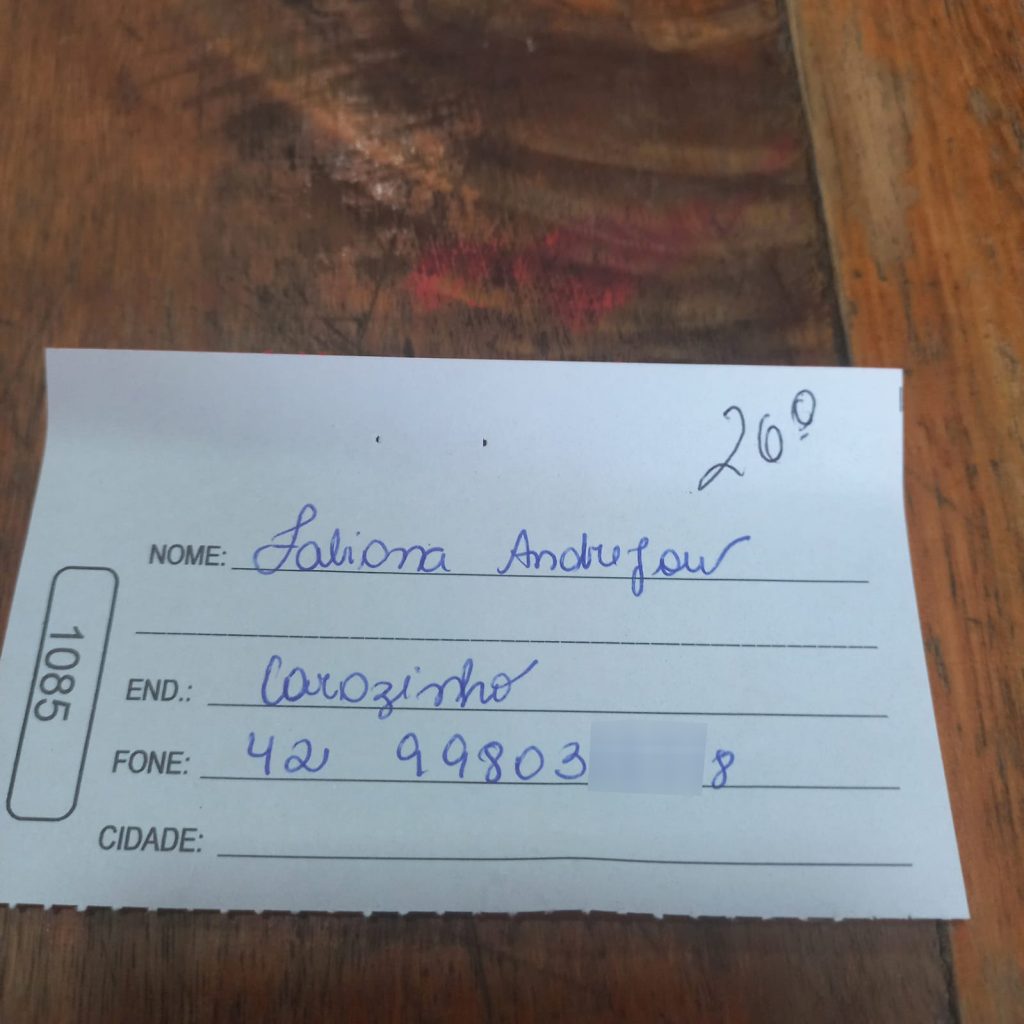 26º
NOME: Fabiana Andrejow
END.: Carozinho
FONE: 42 99803 8
CIDADE:
1085